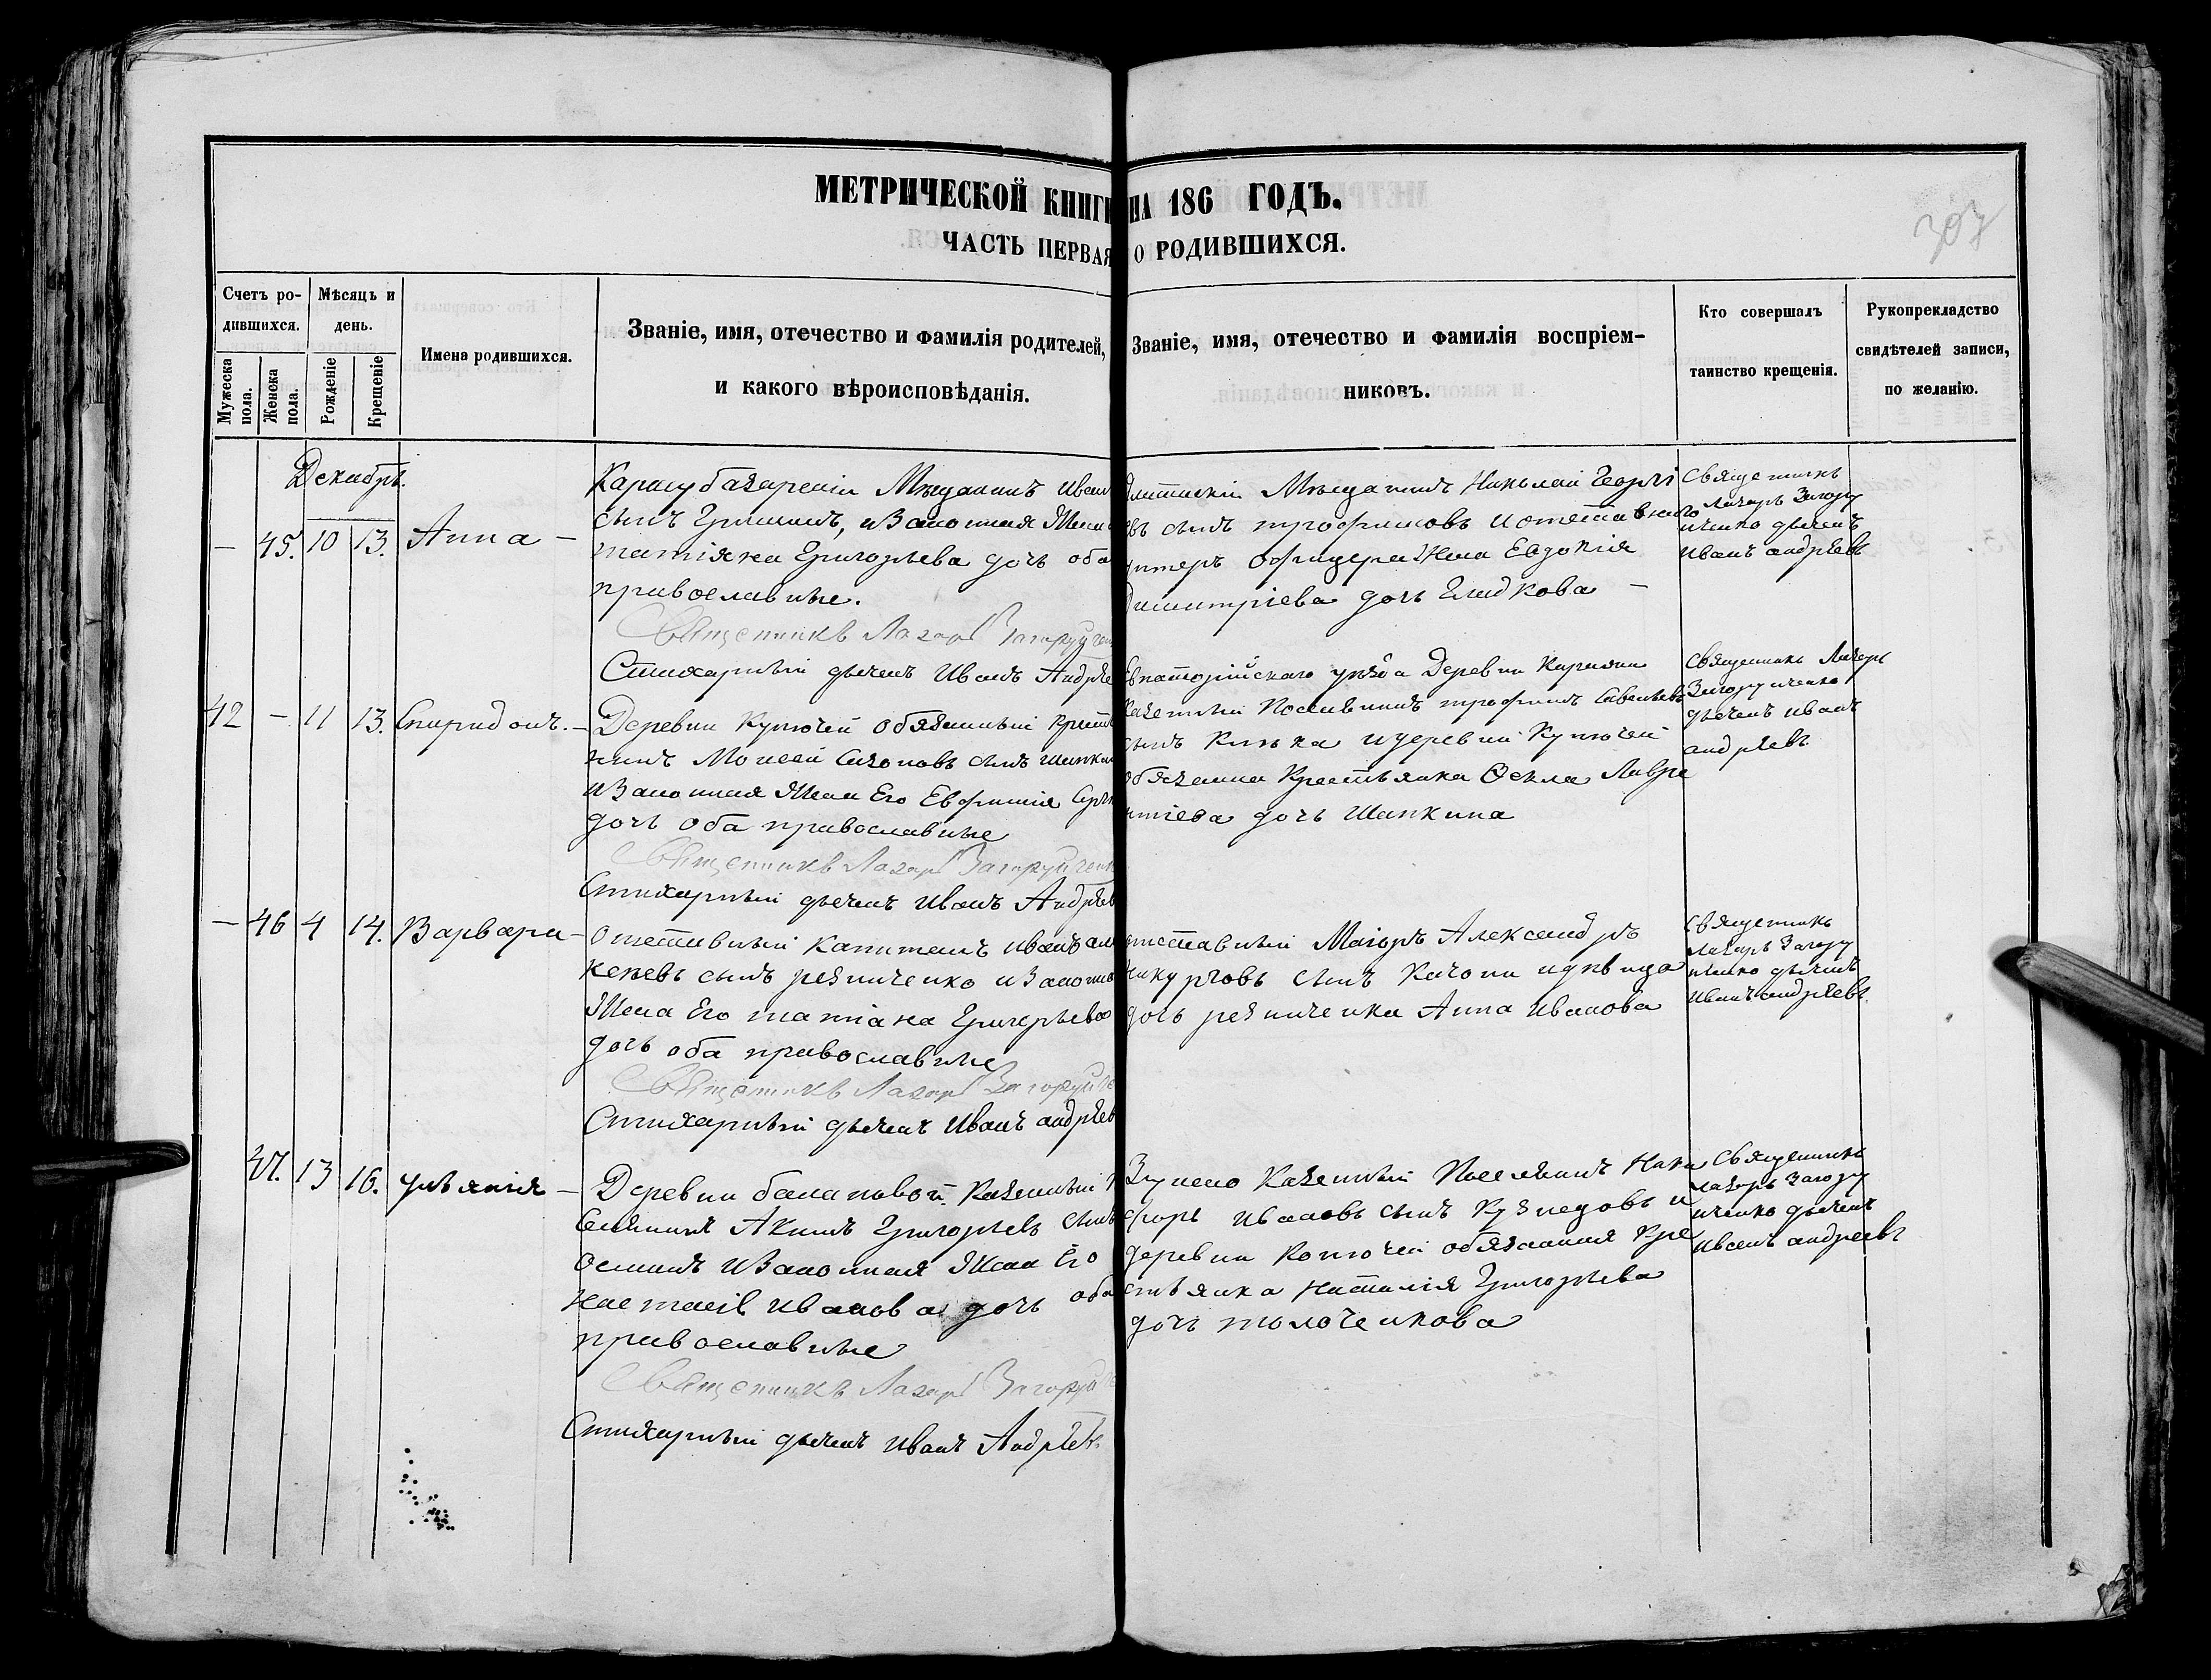 МЕТРИЧЕСКОЙ КНИГИ НА 186 ГОДЪ.
ЧАСТЬ ПЕРВАЯ О РОДИВШИХСЯ.
307
Счетъ ро-
дившихся.
Мужеска
пола.
Женска
пола.
Мѣсяцъ и
день.
Рожденіе
Крещеніе
Имена родившихся.
Званіе, имя, отечество и фамилія родителей,
и какого вѣроисповѣданія.
Званіе, имя, отечество и фамилія воспріем-
никовъ.
Кто совершалъ
таинство крещенія.
Рукоприкладство
свидѣтелей записи,
по желанію.
Декабрь.
— 45. 10 13. Анна —
Карасубазарскій Мѣщанинъ Иван
сынъ Гришинъ, изаконная Жена
татіяна Григорьева дочь оба
православные.
Священникъ Лазарь Загоруйчен
Стихарный дьячекъ Иванъ Андрѣе
Мѣщанинъ Николай Георгі
въ сынъ трофимовъ иотставнаго
унтеръ офицера Жена Евдокія
Димитріева дочь Гладкова —
Священникъ
Лазарь Загору
йченко дьячекъ
Иванъ андрѣевъ
42 — 11 13. Спиридонъ. —
Деревни Кутючей обязанный крест
нинъ Моисей Сазоновъ сынъ шапкин
изаконная Жена Его Евфимія
дочь оба православные
Священникъ Лазарь Загоруйченк
Стихарный дьячекъ Иванъ Андрѣев
Евпаторійскаго уѣзда Деревни
Казенный Поселянинъ трофимъ Савельевъ
сынъ идеревни Кутючей
обязанна Крестьянка Фекла Лавре
нтіева дочь Шапкина
Священникъ Лазарь
Загоруйченко
дьячекъ иванъ
андрѣевъ
— 46 4 14. Варвара —
Отставный капитанъ иванъ
сынъ резниченко изаконна
Жена Его татіана Григорьева
дочь оба православные
Священникъ Лазарь Загоруйче
Стихарный дьячекъ Иванъ андрѣев
отставный Маіоръ Александръ
сынъ Качони идѣвица
дочь резниченка Анна Иванова
Священникъ
Лазарь Загору
йченко дьячекъ
Иванъ андрѣевъ.
47. 13 16. уліянія —
Деревни Казенный П
селянинъ Акимъ Григорьевъ сынъ
Осминъ изаконная Жена Его
Настасія Иванова дочь оба
православные
Священникъ Лазарь Загоруйче
Стихарный дьячекъ Иванъ Андрѣевъ.
Казенный Поселянинъ Ника
форъ Ивановъ сынъ Кузнецовъ и
деревни Котючей обязанная Кре
стьянка Наталія Григорьева
дочь толоченкова
Священникъ
Лазарь Загору
йченко дьячекъ
Иванъ андреевъ